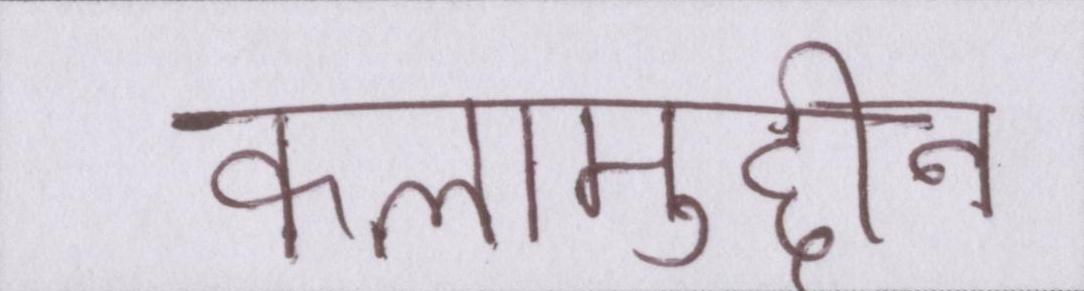 कलामुद्दीन